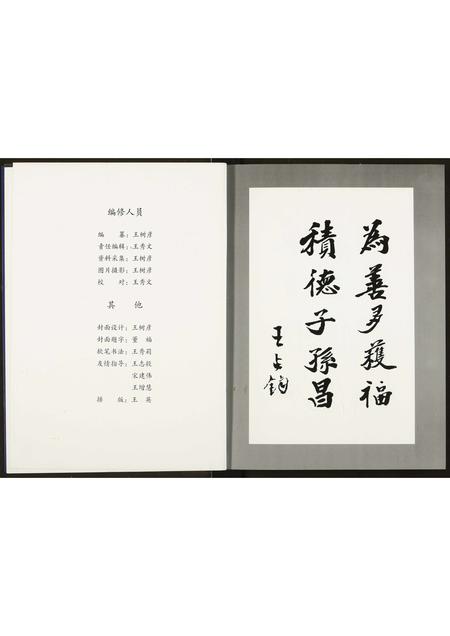 编修人员
编　　纂：王树彦
责任编辑：王秀文
资料采集：王树彦
图片摄影：王树彦
校　　对：王秀文
其　他
封面设计：王树彦
封面题字：董　福
软笔书法：王秀莉
友情指导：王志毅
宋建伟
王增慧
排　　版：王　英
為善多獲福
積德子孫昌
王占鈞